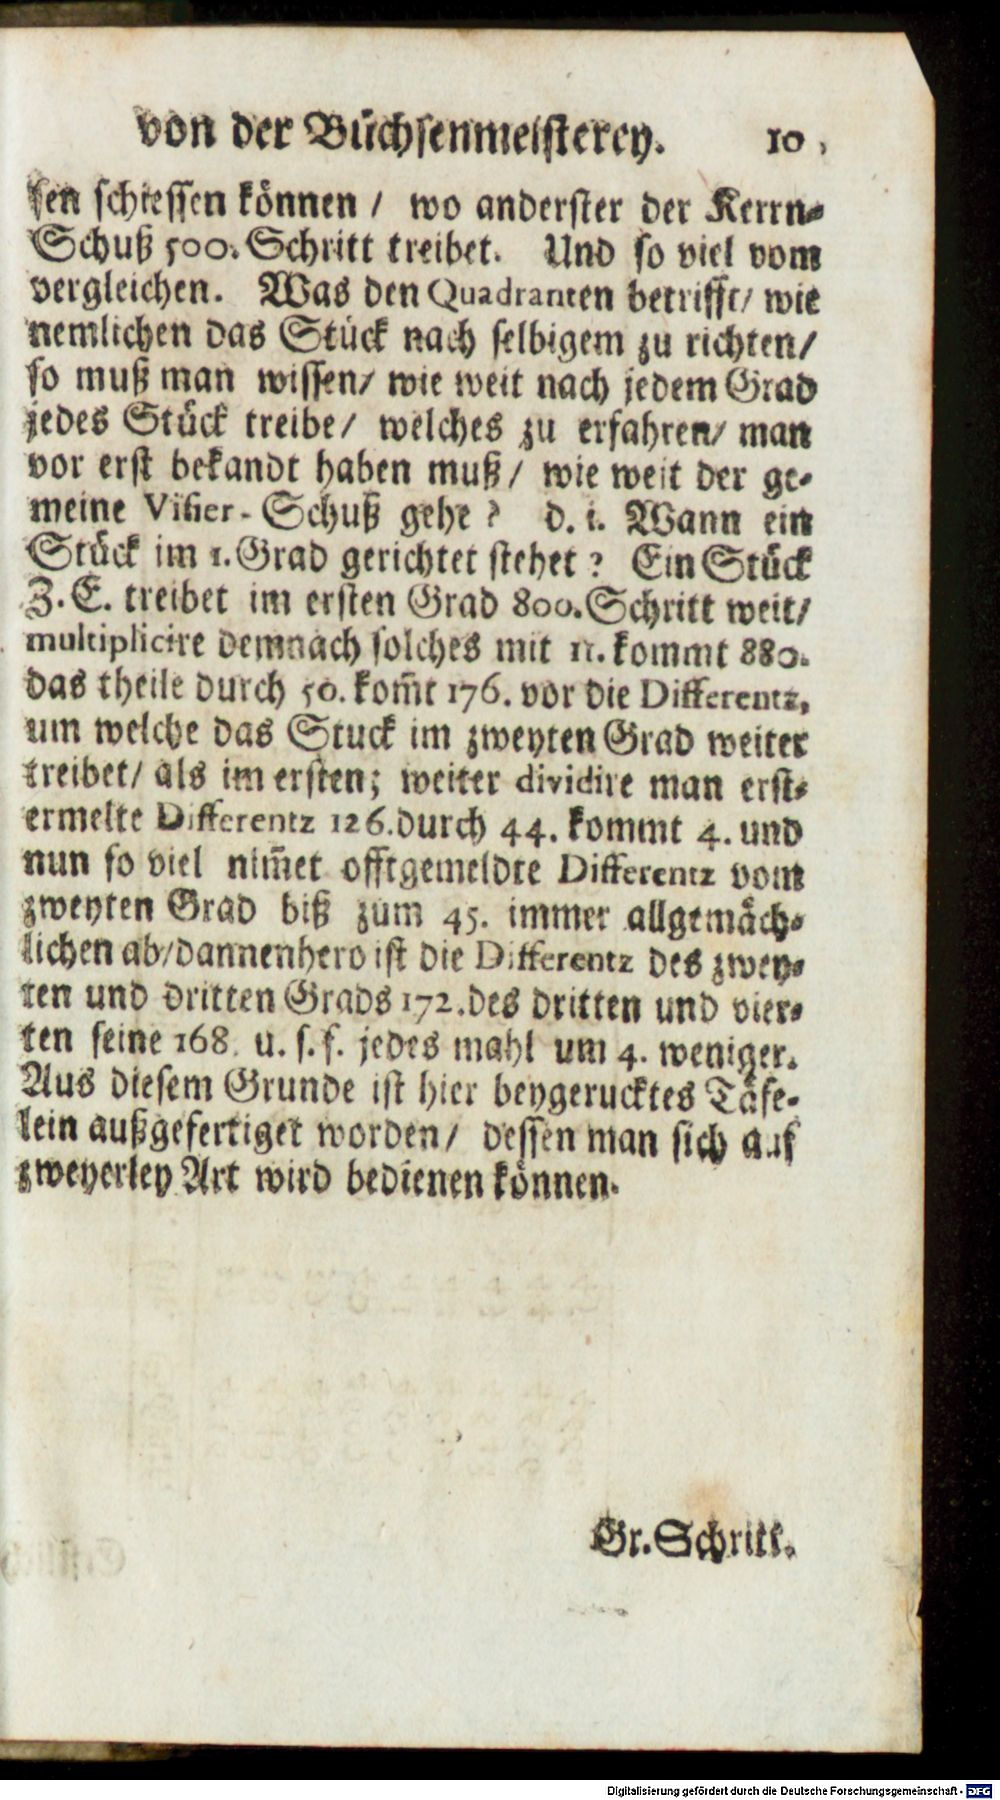 von der Büchsenmeisterey. 10.
sen schiessen können / wo anderster der Kerrn-
Schuß 500. Schritt treibet. Und so viel vom
vergleichen. Was den Quadranten betrifft/ wie
nemlichen das Stück nach selbigem zu richten/
so muß man wissen/ wie weit nach jedem Grad
jedes Stück treibe/ welches zu erfahren/ man
vor erst bekandt haben muß/ wie weit der ge-
meine Visier-Schuß gehe? d. i. Wann ein
Stück im 1. Grad gerichtet stehet? Ein Stück
Z. E. treibet im ersten Grad 800. Schritt weit/
multiplicire demnach solches mit 11. kommt 880.
das theile durch 50. kom̃t 176. vor die Differentz,
um welche das Stuck im zweyten Grad weiter
treibet/ als im ersten; weiter dividire man erst-
ermelte Differentz 126. durch 44. kommt 4. und
nun so viel nim̃et offtgemeldte Differentz vom
zweyten Grad biß zum 45. immer allgemäch-
lichen ab/ dannenhero ist die Differentz des zwey-
ten und dritten Grads 172. des dritten und vier-
ten seine 168. u. s. f. jedes mahl um 4. weniger.
Aus diesem Grunde ist hier beygerucktes Täfe-
lein außgefertiget worden/ dessen man sich auf
zweyerley Art wird bedienen können.
Gr. Schritt.
Digitalisierung gefördert durch die Deutsche Forschungsgemeinschaft - DFG